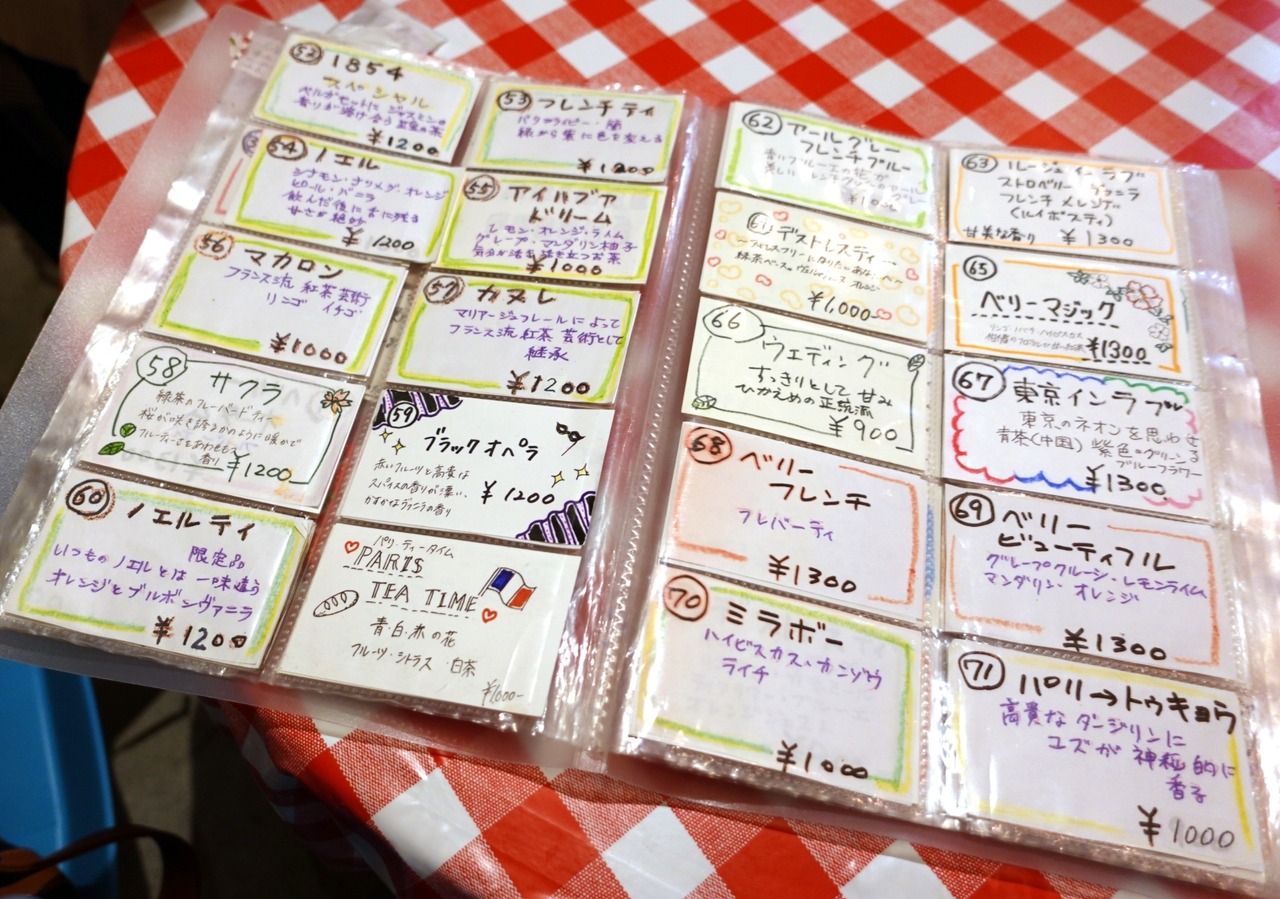 52
1854
スペシャル
ベルガモットと ジャスミンの
香りが溶け合う
¥1200
53
フレンチ ティ
緑から紫に色を変える
54
ノエル
シナモン・ナツメグ・オレンジ
ピール・バニラ
飲んだ後に舌に残る
甘さが絶妙
¥1200
55
アイハブア
ドリーム
レモン・オレンジ・ライム
グレープ・マンダリン 柚子
¥1000
56
マカロン
フランス流 紅茶 芸術
リンゴ イチゴ
¥1000
57
カヌレ
マリアージュフレールによって
フランス流 紅茶 芸術として
継承
¥1200
58
サクラ
緑茶のフレーバードティー
桜が咲き誇るかのように暖かで
フルーティーさをあわせもつ
香り ¥1200
59
ブラック オペラ
赤いフルーツと高貴な
スパイスの香りが漂い、
かすかなヴァニラの香り
¥1200
60
ノエル ティ
限定品
いつものノエルとは 一味違う
オレンジとブルボンヴァニラ
¥1200
パリ・ティータイム
PARIS
TEA TIME
青・白・赤の花
フルーツ・シトラス・白茶
¥1000-
62
アールグレー
フレンチブルー
63
ルージュ インラブ
ストロベリー・ヴァニラ
フレンチ メレンゲ
(ルイボスティ)
甘美な香り ¥1300
デストレスティー
緑茶ベース。
オレンジ
¥1,000-
65
ベリーマジック
¥1300
66
ウェディング
すっきりとして 甘み
ひかえめの正統流
¥900
67
東京インラブ
東京のネオンを思わせ
青茶(中国) 紫色・グリーン
ブルーフラワー
¥1300
68
ベリー
フレンチ
フレバーティ
¥1300
69
ベリー
ビューティフル
グレープフルーツ・レモンライム
マンダリン・オレンジ
¥1300
70
ミラボー
ハイビスカス・カンゾウ
ライチ
¥1000
71
パリ→トウキョウ
高貴な ダージリンに
ユズが 神秘的に
香る
¥1000